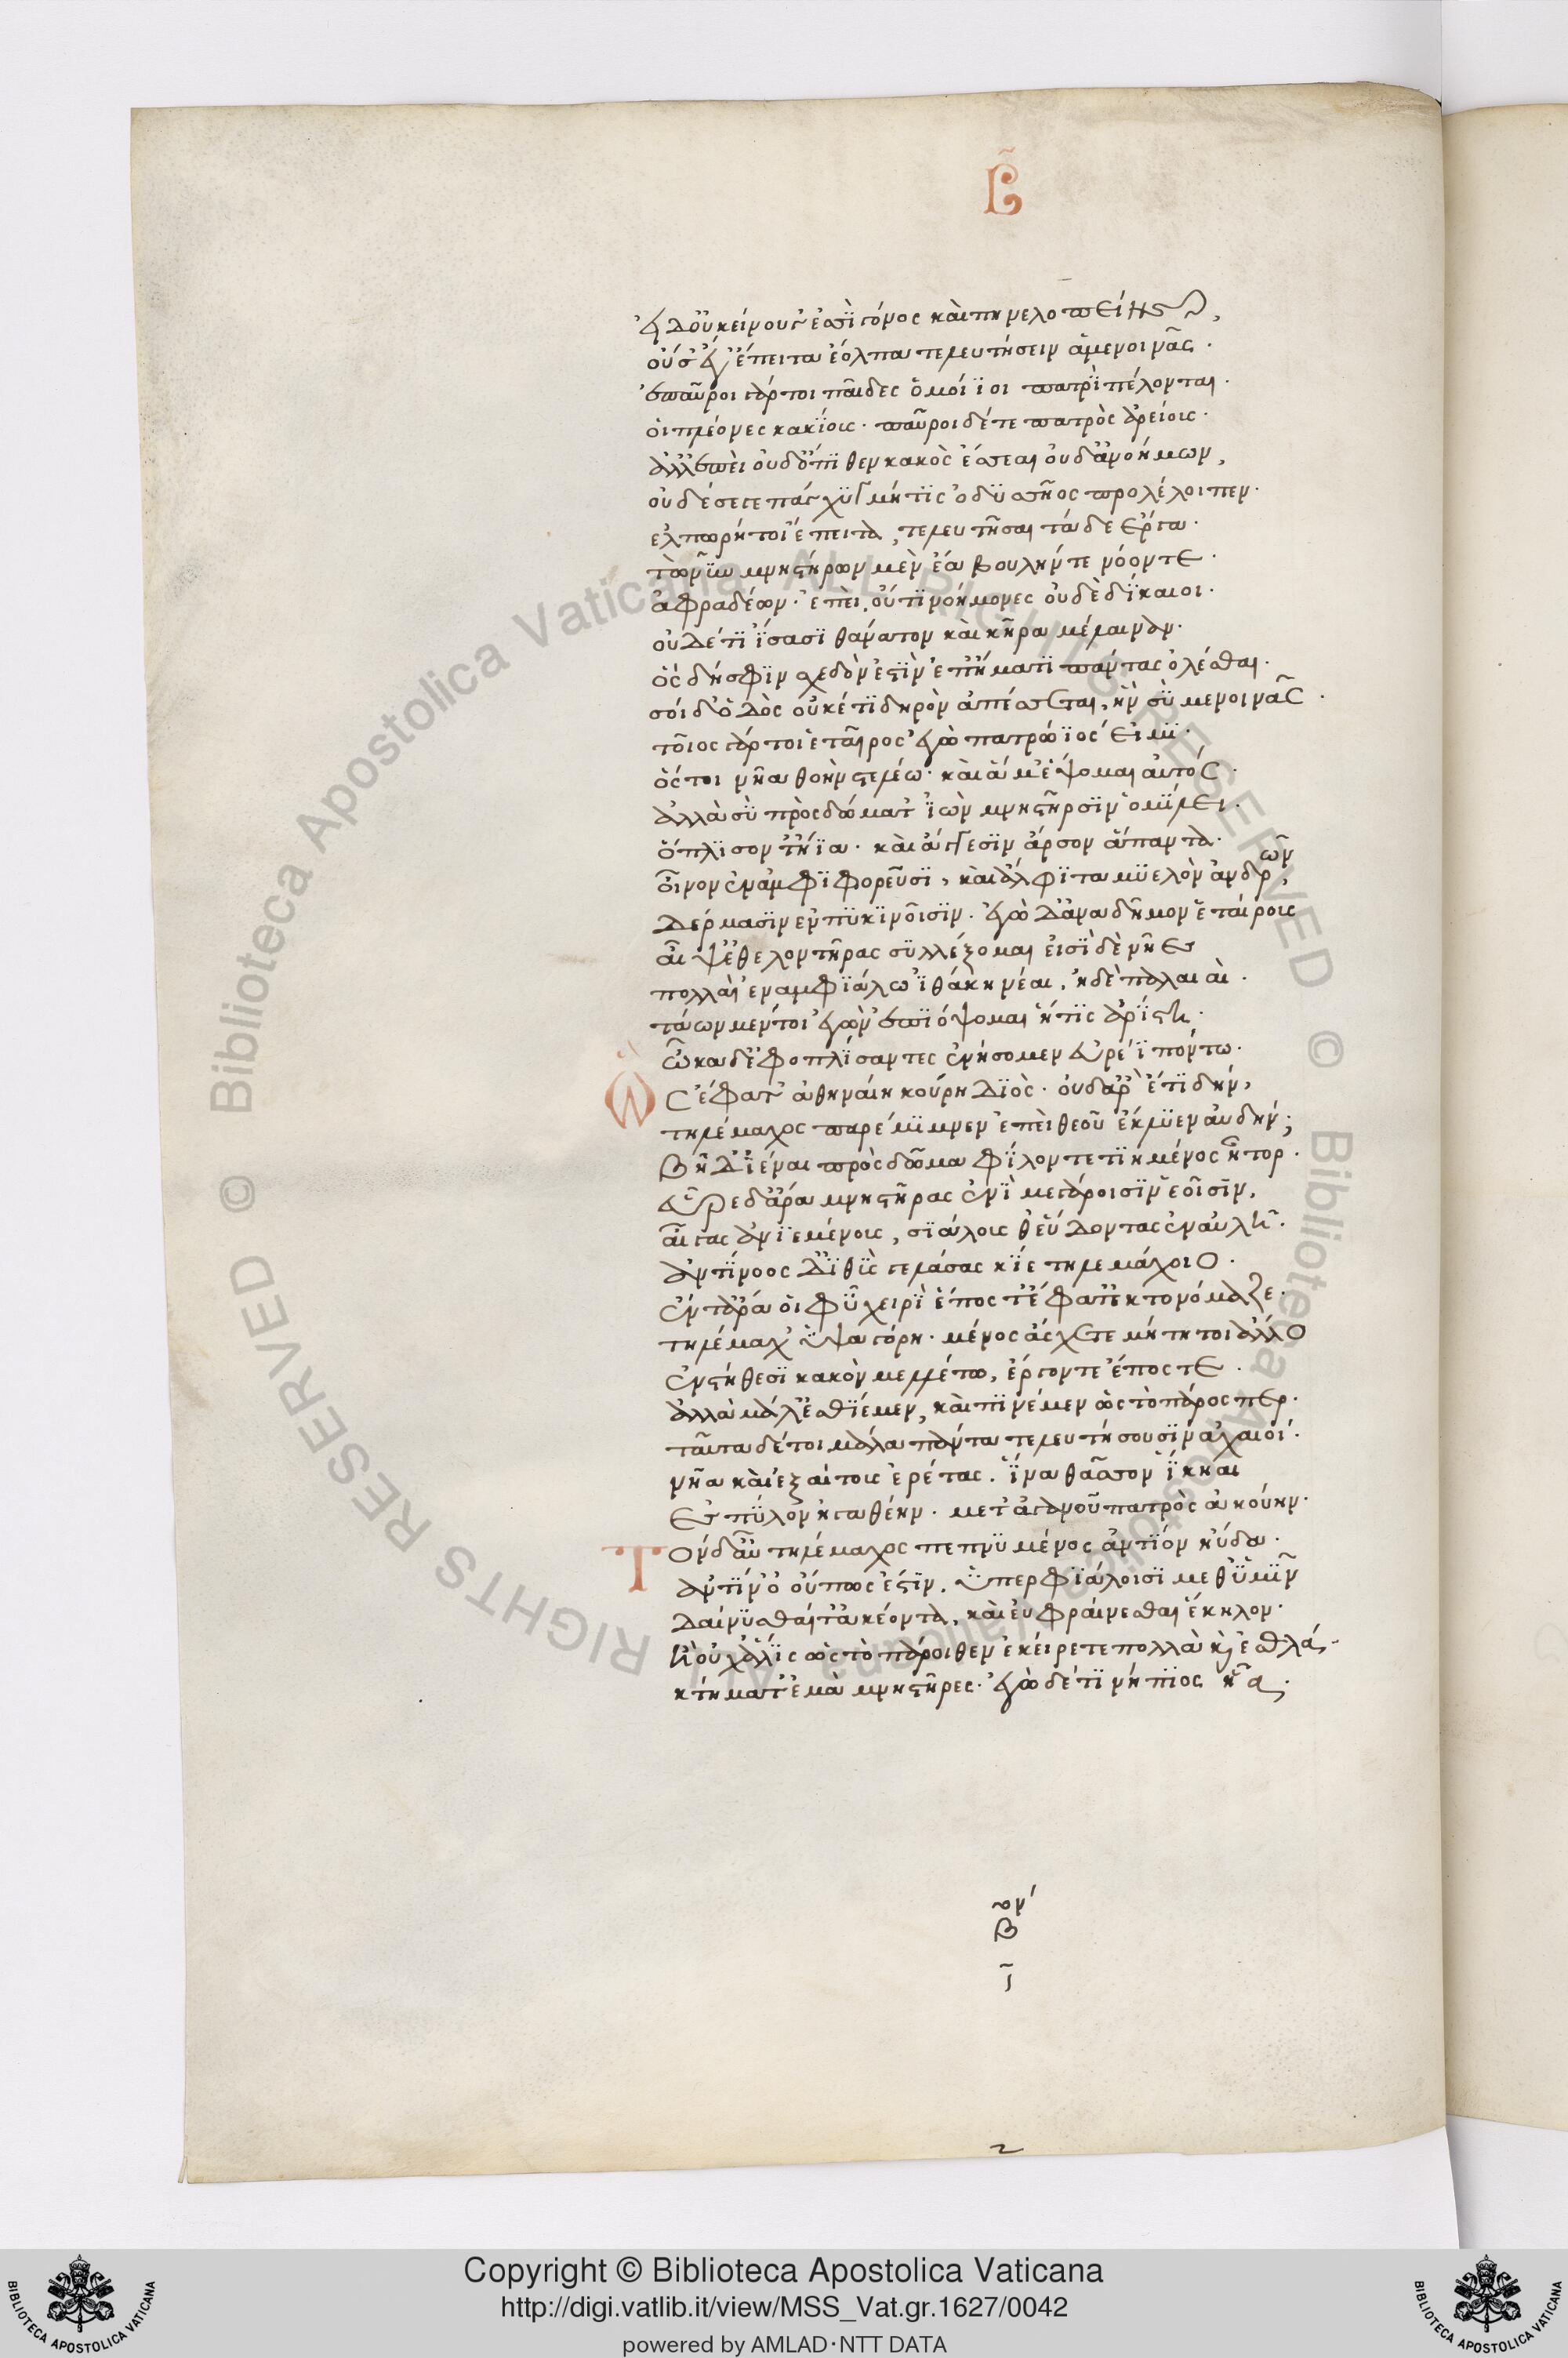 Ε̃
εἰ δ' οὐ κείνου γ' ἐσσὶ γόνος καὶ πηνελοπείης,
οὐ σέ γ' ἔπειτα ἔολπα τελευτήσειν ἃ μενοινᾶς.
παῦροι γάρ τοι παῖδες ὁμοίϊοι πατρὶ πέλονται.
οἱ πλέονες κακίους. παῦροι δέ τε πατρὸς ἀρείους.
ἀλλ' ἐπεὶ οὐδ' ὄπιθεν κακὸς ἔσσεαι οὐδ' ἀνοήμων,
οὐδέ σε γε πάγχυ μῆτις ὀδυσσῆος προλέλοιπεν.
ἐλπωρή τοι ἔπειτα, τελευτῆσαι τάδε ἔργα.
τῶ νῦν μνηστήρων μὲν ἔα βουλήν τε νόον τε.
ἀφραδέων. ἐπεὶ οὔτι νοήμονες οὐδὲ δίκαιοι.
οὐδέ τι ἴσασι θάνατον καὶ κῆρα μέλαιναν.
ὃς δή σφιν σχεδὸν ἐστὶν ἐπ' ἤματι πάντας ὀλέσθαι.
σοὶ δ' ὁδὸς οὐκέτι δηρὸν ἀπέσσεται, ἣν σὺ μενοινᾶς.
τοῖος γάρ τοι ἑταῖρος ἐγὼ πατρώϊός εἰμι.
ὅς τοι νῆα θοὴν στελέω. καὶ ἅμ' ἕψομαι αὐτός.
ἀλλὰ σὺ πρὸς δώματ' ἰὼν μνηστῆρσιν ὁμίλει.
ὅπλισόν τ' ἤϊα. καὶ ἄγγεσιν ἄρσον ἅπαντα.
οἶνον ἐν ἀμφιφορεῦσι, καὶ ἄλφιτα μυελὸν ἀνδρῶν,
δέρμασιν ἐν πυκινοῖσιν. ἐγὼ δ' ἀνὰ δῆμον ἑταίρους
αἶψ' ἐθελοντῆρας συλλέξομαι εἰσὶ δὲ νῆες
πολλαὶ ἐν ἀμφιάλω ἰθάκη νέαι, ἠδὲ παλαιαί.
τάων μέν τοι ἐγὼν ἐπιόψομαι ἥτις ἀρίστη.
ὦκα δ' ἐφοπλίσαντες ἐνήσομεν εὐρέϊ πόντω.
Ὣς ἔφατ' ἀθηναίη κούρη διός. οὐδ' ἄρ' ἔτι δὴν,
τηλέμαχος παρέμιμνεν ἐπεὶ θεοῦ ἔκλυεν αὐδήν;
βῆ δ' ἰέναι πρὸς δῶμα φίλον τετιημένος ἦτορ.
εὗρε δ' ἄρα μνηστῆρας ἐνὶ μεγάροισιν ἑοῖσιν,
αἶγας ἀνιεμένους, σιάλους θ' εὕδοντας ἐν αὐλῆ.
ἀντίνοος δ' ἰθὺς γελάσας κίε τηλεμάχοιο.
ἔν τ' ἄρα οἱ φῦ χειρὶ ἔπος τ' ἔφατ' ἔκ τ' ὀνόμαζε.
τηλέμαχ' ὑψαγόρη. μένος ἄσχετε μή τη τοι ἄλλο
ἐν στήθεσι κακὸν μελλέτω, ἔργον τε ἔπος τε.
ἀλλὰ μάλ' ἐσθιέμεν, καὶ πινέμεν ὡς τὸ πάρος περ.
ταῦτα δέ τοι μάλα πάντα τελευτήσουσιν ἀχαιοί.
νῆα καὶ ἐξαίτους ἐρέτας. ἵνα θᾶσσον ἵκηαι
ἐς πύλον ἠγαθέην. μετ' ἀγαυοῦ πατρὸς ἀκουήν.
Τὸν δ' αὖ τηλέμαχος πεπνυμένος ἀντίον ηὔδα.
ἀντίνο' οὔπως ἔστιν. ὑπερφιάλοισι μεθ' ὑμῖν
δαίνυσθαί τ' ἀκέοντα, καὶ εὐφραίνεσθαι ἕκηλον.
ἢ οὐχ ἅλις ὡς τὸ πάροιθεν ἐκείρετε πολλὰ κ(αὶ) ἐσθλά.
κτήματ' ἐμὰ μνηστῆρες. ἐγὼ δ' ἔτι νήπιος ἦα.
Copyright © Biblioteca Apostolica Vaticana
http://digi.vatlib.it/view/MSS_Vat.gr.1627/0042
powered by AMLAD·NTT DATA